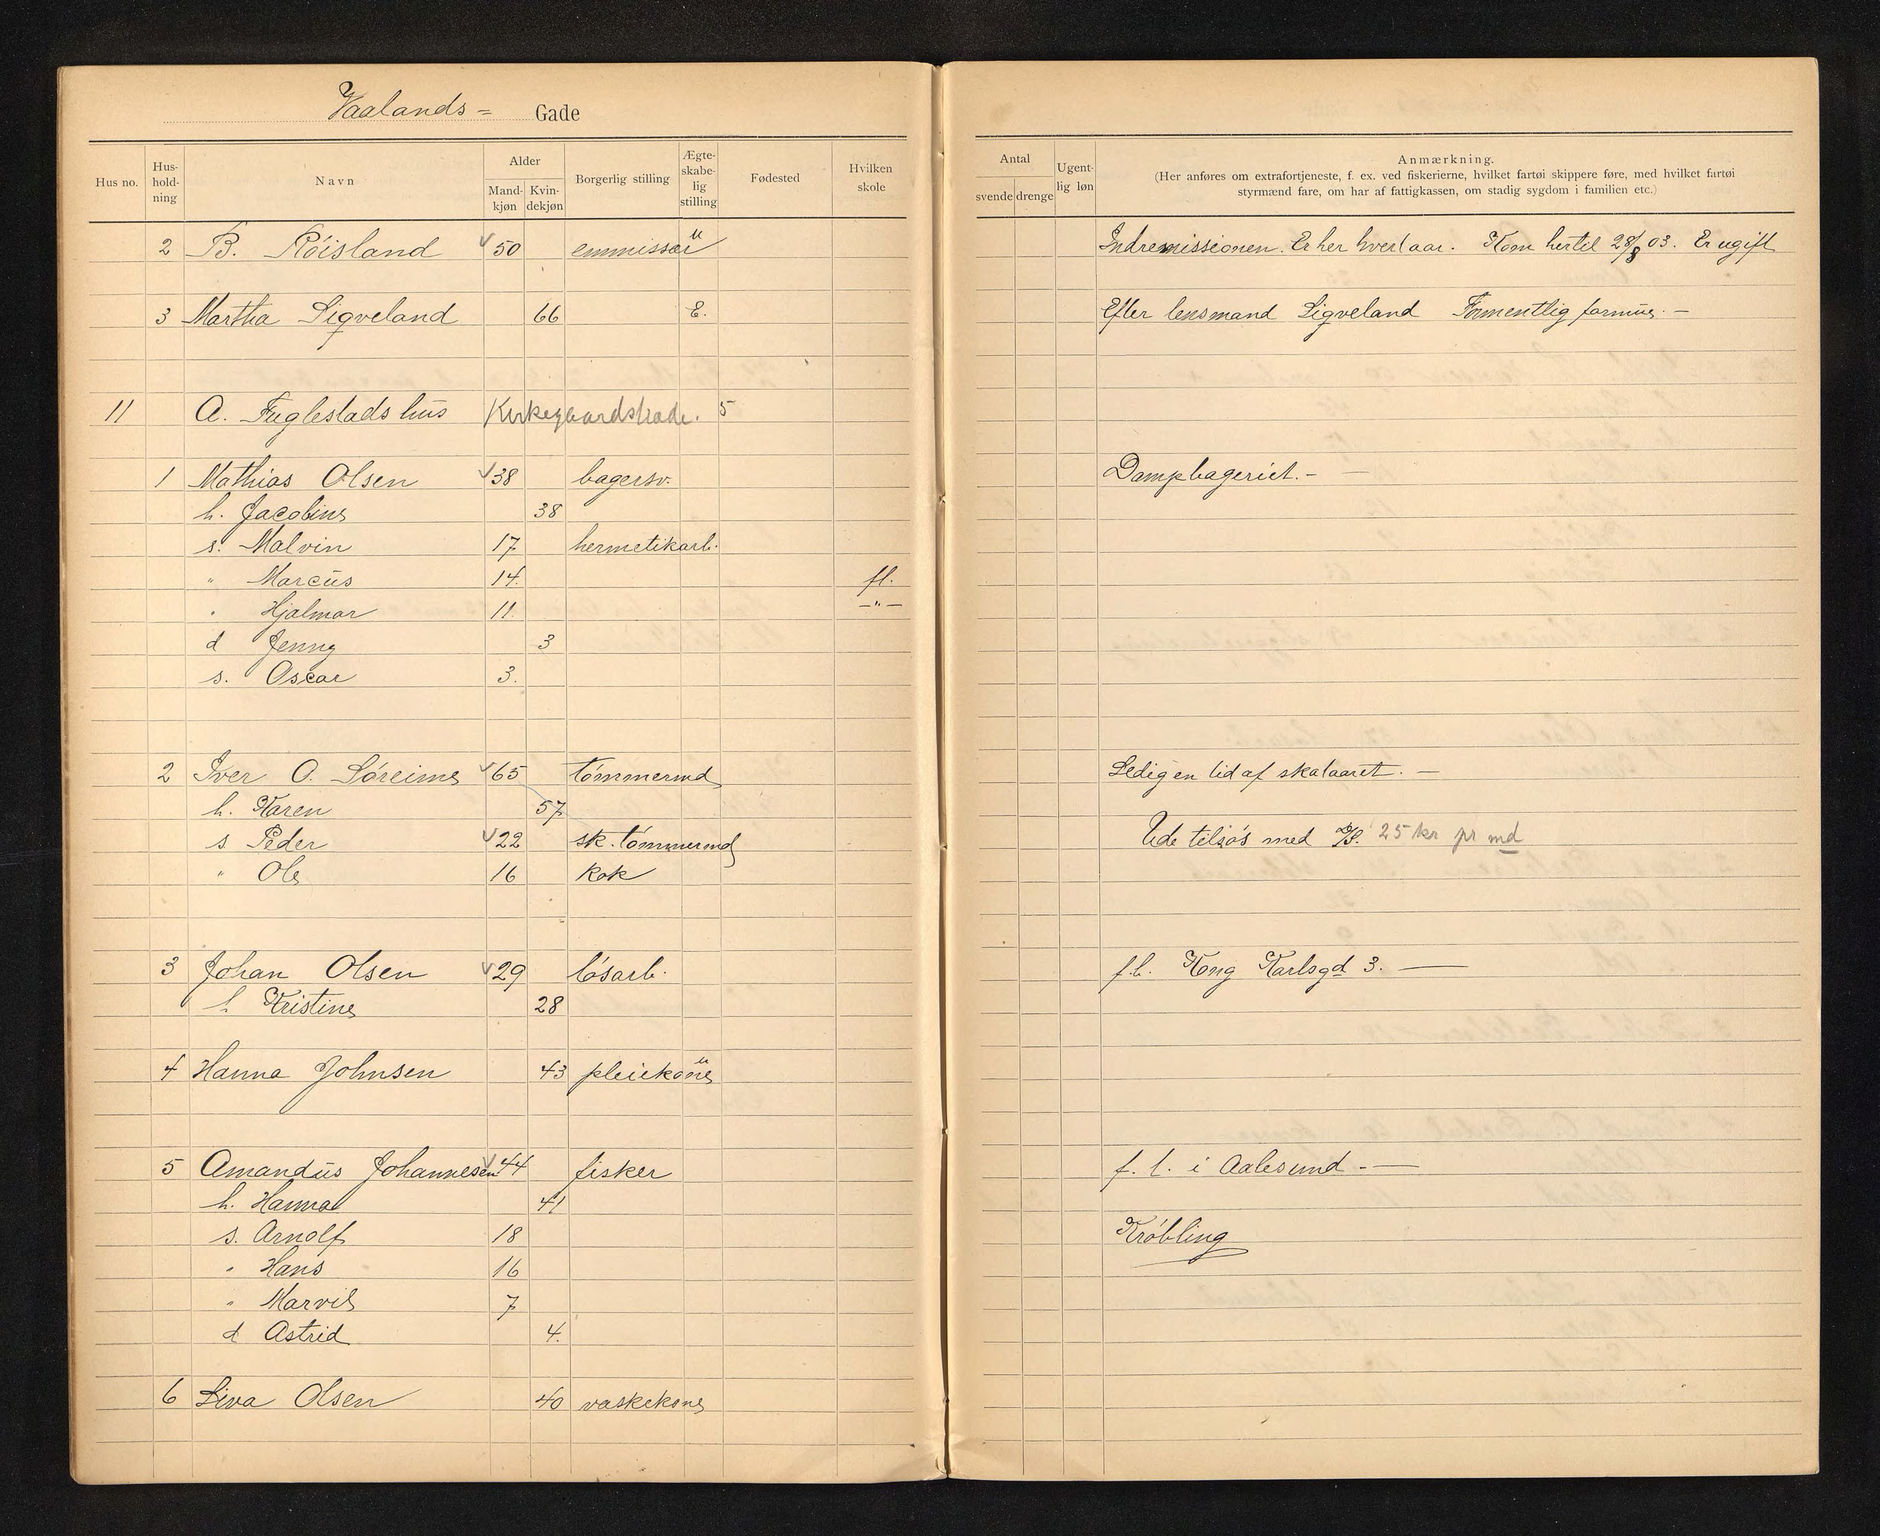 Vaalands= Gade
Hus no. Hus-hold-ning Navn Alder Mand-kjøn Kvin-dekjøn Borgerlig stilling Ægte-skabe-lig stilling Fødested Hvilken skole
Antal svende drenge Ugent-lig løn Anmærkning.
(Her anføres om extrafortjeneste, f. ex. ved fiskerierne, hvilket fartøi skippere føre, med hvilket fartøi
styrmænd fare, om har af fattigkassen, om stadig sygdom i familien etc.)
2 B. Röisland √ 50 emmissær u Indremissionen. Er her hvert aar. Kom hertil 28/8 03. Er ugift
3 Martha Sigveland 66 E. Efter lensmand Sigveland Formentlig formue. —
11 A. Fuglestads hus Kirkegaardsbade. 5
1 Mathias Olsen √ 38 bagersv. Dampbageriet. —
h. Jacobine 38
s. Malvin 17 hermetikarb.
" Marcus 14. fl.
" Hjalmar 11. —"—
d Jenny 3
s. Oscar 3.
2 Iver O. Söreime √ 65 tömmermd Ledig en tid af skataaret. —
h. Karen 57
s Peder √ 22 sk. tömmermd Ude tilsös med D/S. 25 kr pr md
" Ole 16 kok
3 Johan Olsen √ 29 lösarb. f.b. Kong Karlsgd 3. —
h Kristine 28
4 Hanna Johnsen 43 pleiekone u
5 Amandus Johannesen √ 44 fisker f. b. i Aalesund — —
h. Hanna 41
s. Arnolf 18 Kröbling
" Hans 16
" Marvil 7
d Astrid 4.
6 Siva Olsen 40 vaskekone